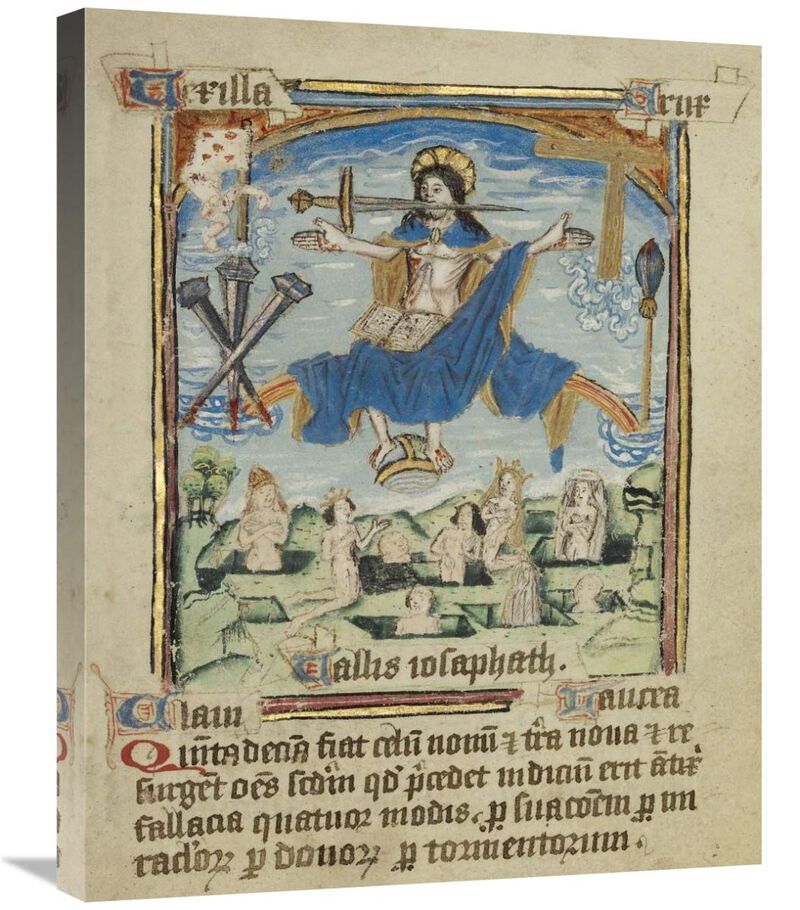 Vexilla
Crux
Vallis iosaphath.
Clavi
Lancea
Quinta decia fiat celu nouu ⁊ tra noua ⁊ re
surget oes scdm qd pcedet indiciu erit atix
fallacia quatuor modis. p suacoem p mi
raclorꝝ p donorꝝ p tormentorum.